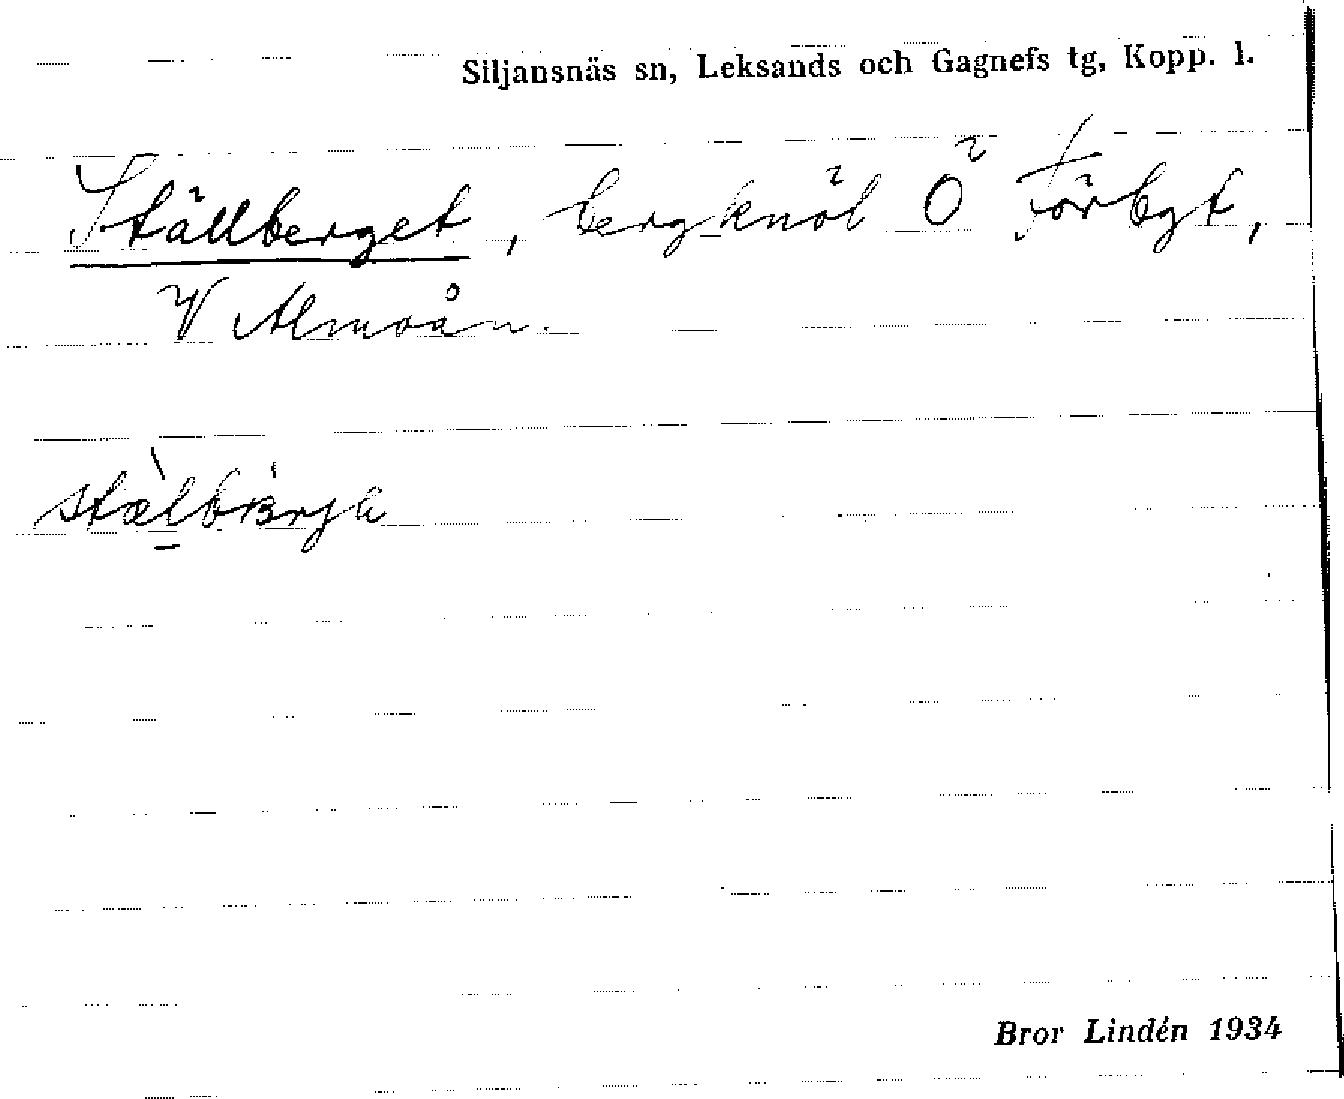 Siljansnäs sn, Leksands och Gagnefs tg, Kopp. l.
Ställberget, bergknöl Ö Förbyt,
V Almoån.
Bror Lindén 1934